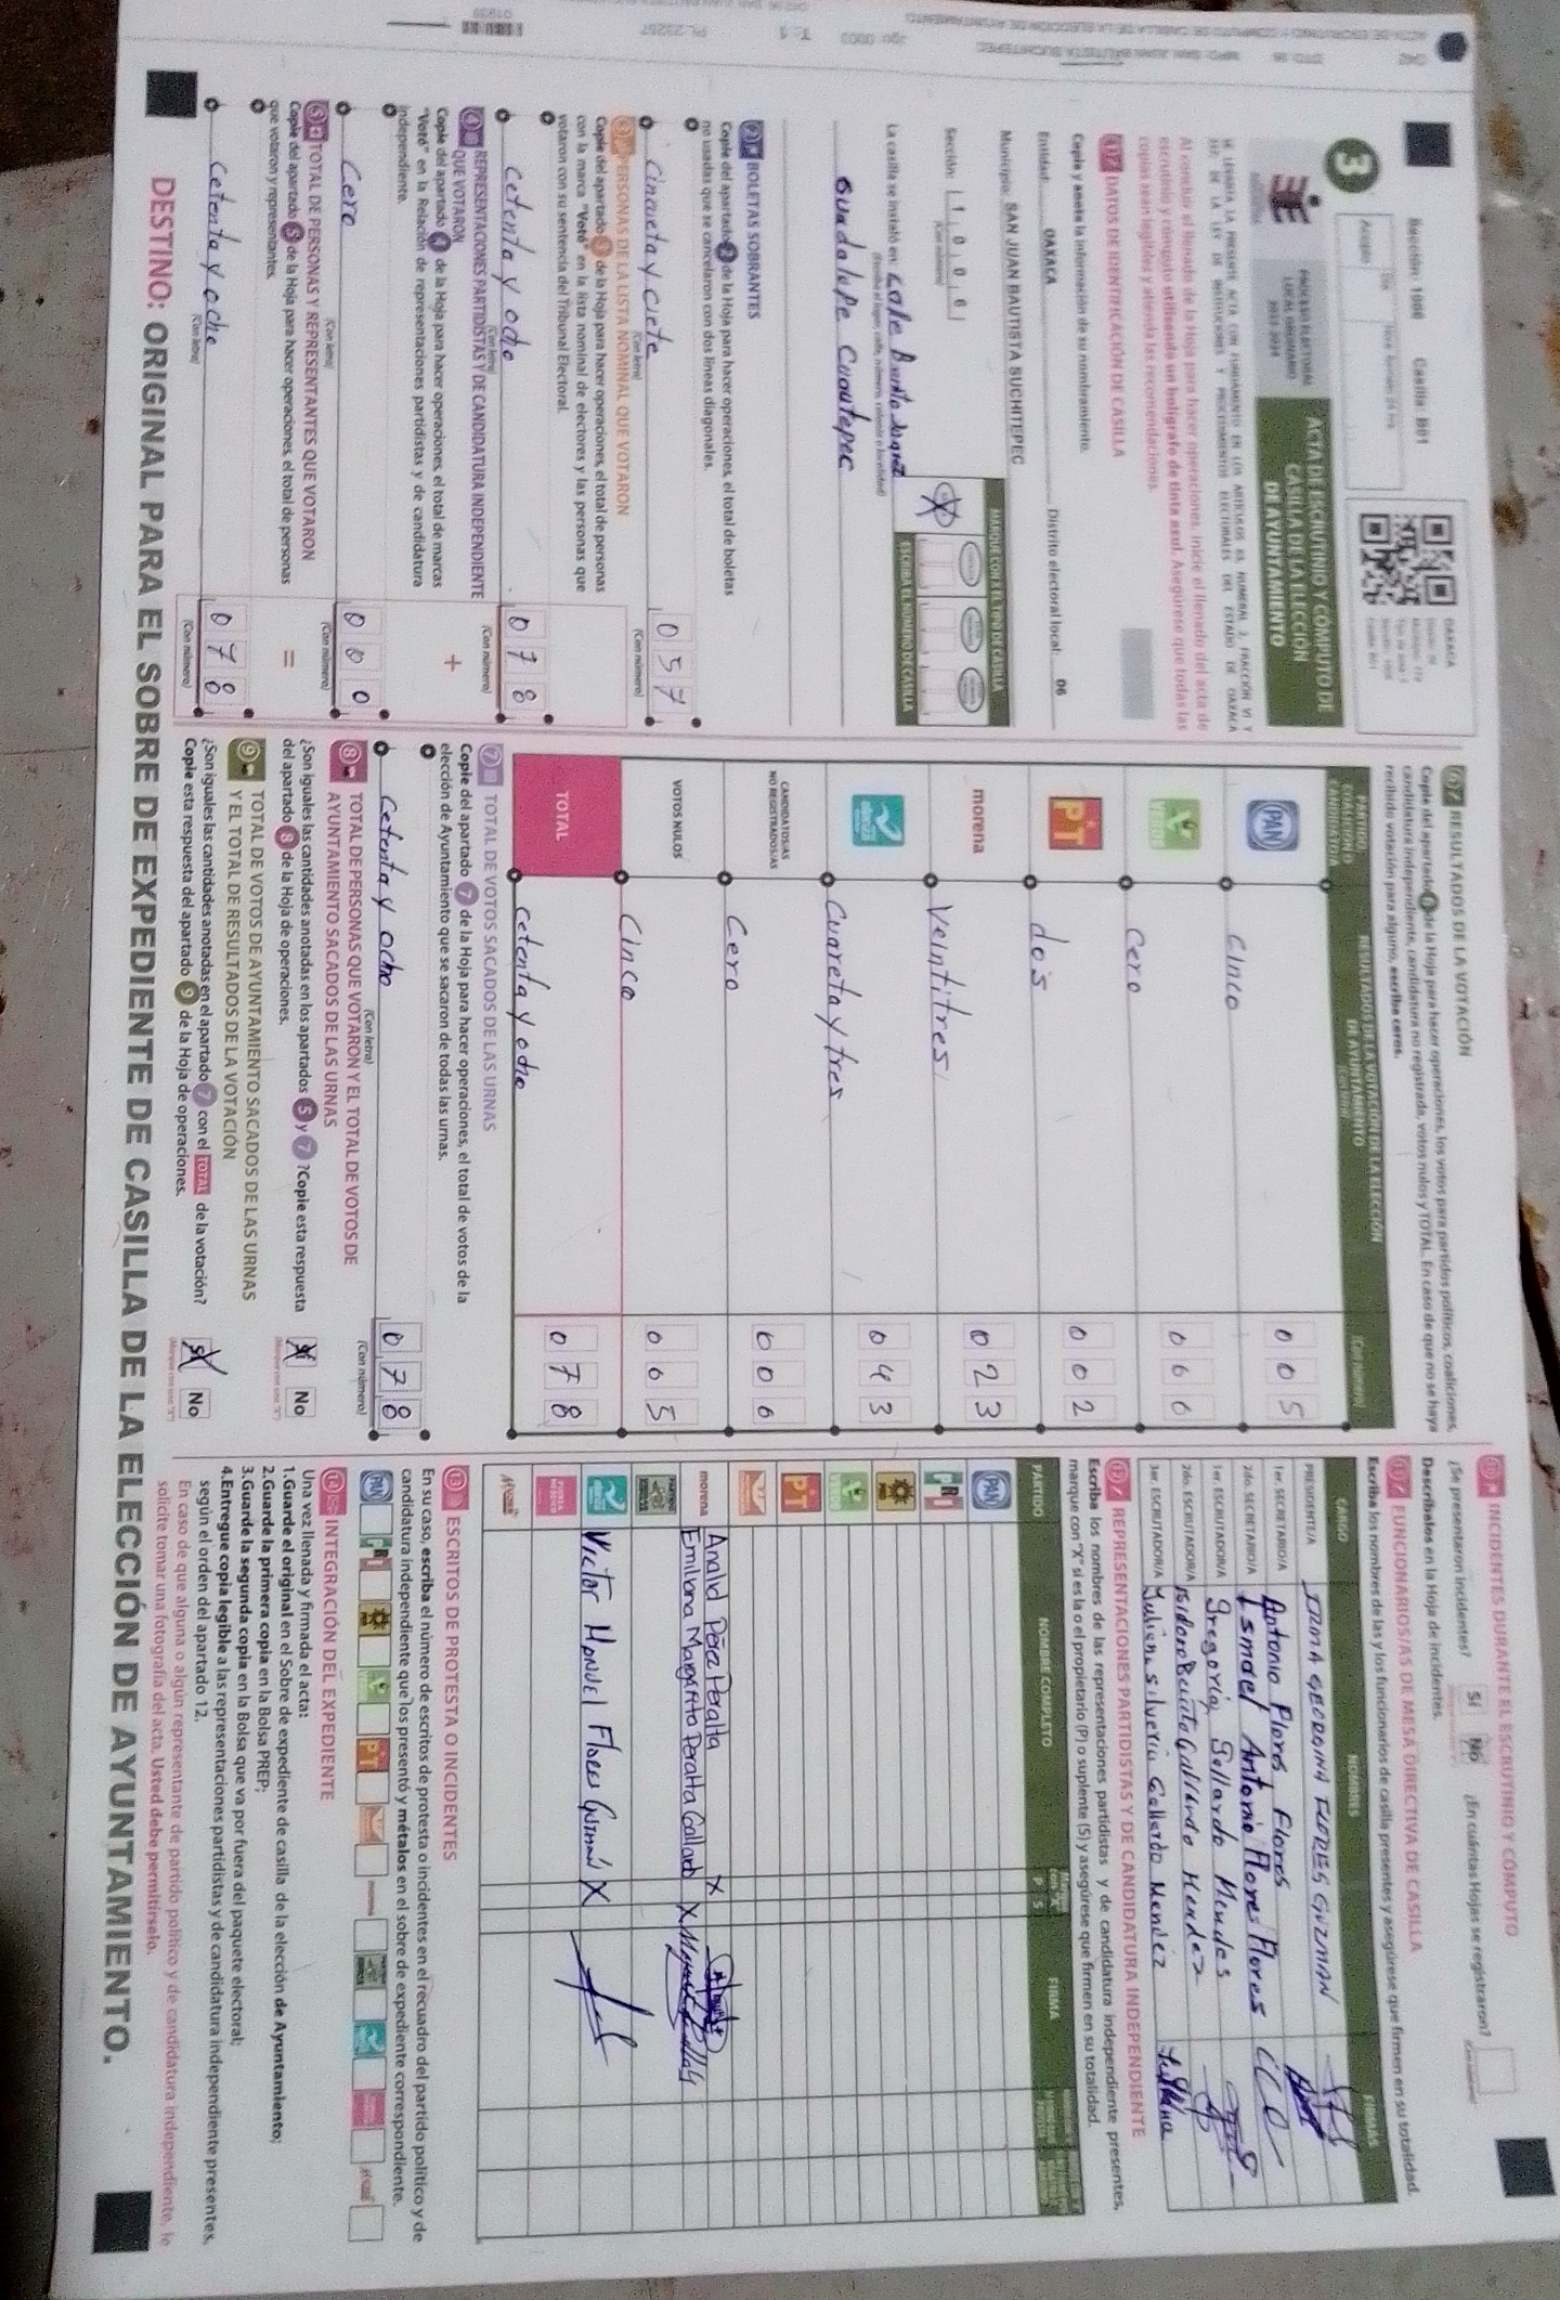 Sección: 1006 Casilla B01
3
PROCESO ELECTORAL
LOCAL ORDINARIO
2023-2024
ACTA DE ESCRUTINIO Y CÓMPUTO DE
CASILLA DE LA ELECCIÓN
DE AYUNTAMIENTO
OAXACA
Al concluir el llenado de la Hoja para hacer operaciones, inicie el llenado del acta de
escrutinio y cómputo utilizando un bolígrafo de tinta azul. Asegúrese que todas las
copias sean legibles y atienda las recomendaciones.
1 DATOS DE IDENTIFICACIÓN DE CASILLA
Copie y anote la información de su nombramiento.
Entidad: OAXACA Distrito electoral local: 06
Municipio: SAN JUAN BAUTISTA SUCHITEPEC
Sección: 1 0 0 6
(Con número)
MARQUE CON X EL TIPO DE CASILLA
ESCRIBA EL NÚMERO DE CASILLA
La casilla se instaló en: Calle Benito Juarez
Guadalupe Cuautepec
2 BOLETAS SOBRANTES
Copie del apartado 2 de la Hoja para hacer operaciones, el total de boletas
no usadas que se cancelaron con dos líneas diagonales.
Cincueta y ciete 0 5 7
(Con letra) (Con número)
3 PERSONAS DE LA LISTA NOMINAL QUE VOTARON
Copie del apartado 3 de la Hoja para hacer operaciones, el total de personas
con la marca "Votó" en la lista nominal de electores y las personas que
votaron con su sentencia del Tribunal Electoral.
Cetenta y ocho 0 7 8
(Con letra) (Con número)
4 REPRESENTACIONES PARTIDISTAS Y DE CANDIDATURA INDEPENDIENTE
QUE VOTARON
Copie del apartado 4 de la Hoja para hacer operaciones, el total de marcas
"Votó" en la Relación de representaciones partidistas y de candidatura
independiente.
+
Cero 0 0 0
(Con letra) (Con número)
5 TOTAL DE PERSONAS Y REPRESENTANTES QUE VOTARON
Copie del apartado 5 de la Hoja para hacer operaciones, el total de personas
que votaron y representantes.
=
Cetenta y ocho 0 7 8
(Con letra) (Con número)
6 RESULTADOS DE LA VOTACIÓN
Copie del apartado 6 de la Hoja para hacer operaciones, los votos para partidos políticos, coaliciones,
candidatura independiente, candidatura no registrada, votos nulos y TOTAL. En caso de que no se haya
recibido votación para alguno, escriba ceros.
PARTIDO, COALICIÓN O CANDIDATO/A
RESULTADOS DE LA VOTACIÓN DE LA ELECCIÓN
DE AYUNTAMIENTO
(Con letra) (Con número)
PAN Cinco 0 0 5
VERDE Cero 0 0 0
PT dos 0 0 2
morena Veintitres 0 2 3
nueva alianza Cuareta y tres 0 4 3
CANDIDATOS/AS NO REGISTRADOS/AS Cero 0 0 0
VOTOS NULOS Cinco 0 0 5
TOTAL Cetenta y ocho 0 7 8
7 TOTAL DE VOTOS SACADOS DE LAS URNAS
Copie del apartado 7 de la Hoja para hacer operaciones, el total de votos de la
elección de Ayuntamiento que se sacaron de todas las urnas.
Cetenta y ocho 0 7 8
(Con letra) (Con número)
8 TOTAL DE PERSONAS QUE VOTARON Y EL TOTAL DE VOTOS DE
AYUNTAMIENTO SACADOS DE LAS URNAS
¿Son iguales las cantidades anotadas en los apartados 5 y 7 ?Copie esta respuesta
del apartado 8 de la Hoja de operaciones.
Sí No
9 TOTAL DE VOTOS DE AYUNTAMIENTO SACADOS DE LAS URNAS
Y EL TOTAL DE RESULTADOS DE LA VOTACIÓN
¿Son iguales las cantidades anotadas en el apartado 7 con el TOTAL de la votación?
Copie esta respuesta del apartado 9 de la Hoja de operaciones.
Sí No
10 INCIDENTES DURANTE EL ESCRUTINIO Y CÓMPUTO
¿Se presentaron incidentes? Sí No ¿En cuántas Hojas se registraron?
Descríbalos en la Hoja de incidentes.
11 FUNCIONARIOS/AS DE MESA DIRECTIVA DE CASILLA
Escriba los nombres de las y los funcionarios de casilla presentes y asegúrese que firmen en su totalidad.
CARGO NOMBRES FIRMAS
PRESIDENTE/A IRMA GEORGINA FLORES GUZMAN
1er. SECRETARIO/A Antonio Flores Flores
2do. SECRETARIO/A Ismael Antonio Flores Flores
1er. ESCRUTADOR/A Gregoria Gallardo Mendes
2do. ESCRUTADOR/A Isidoro Bautista Gallardo Mendez
3er. ESCRUTADOR/A Juliena Silveria Gallardo Mendez
12 REPRESENTACIONES PARTIDISTAS Y DE CANDIDATURA INDEPENDIENTE
Escriba los nombres de las representaciones partidistas y de candidatura independiente presentes,
marque con "X" si es la o el propietario (P) o suplente (S) y asegúrese que firmen en su totalidad.
PARTIDO NOMBRE COMPLETO P S FIRMA
PAN
PRI
PRD
VERDE
PT
morena Analid Peña Peralta X
Emiliana Margarito Peralta Gallardo X
nueva alianza Victor Manuel Flores Guzmán X
13 ESCRITOS DE PROTESTA O INCIDENTES
En su caso, escriba el número de escritos de protesta o incidentes en el recuadro del partido político y de
candidatura independiente que los presentó y métalos en el sobre de expediente correspondiente.
14 INTEGRACIÓN DEL EXPEDIENTE
Una vez llenada y firmada el acta:
1.Guarde el original en el Sobre de expediente de casilla de la elección de Ayuntamiento;
2.Guarde la primera copia en la Bolsa PREP;
3.Guarde la segunda copia en la Bolsa que va por fuera del paquete electoral;
4.Entregue copia legible a las representaciones partidistas y de candidatura independiente presentes,
según el orden del apartado 12.
En caso de que alguna o algún representante de partido político y de candidatura independiente, le
solicite tomar una fotografía del acta, Usted debe permitírselo.
DESTINO: ORIGINAL PARA EL SOBRE DE EXPEDIENTE DE CASILLA DE LA ELECCIÓN DE AYUNTAMIENTO.